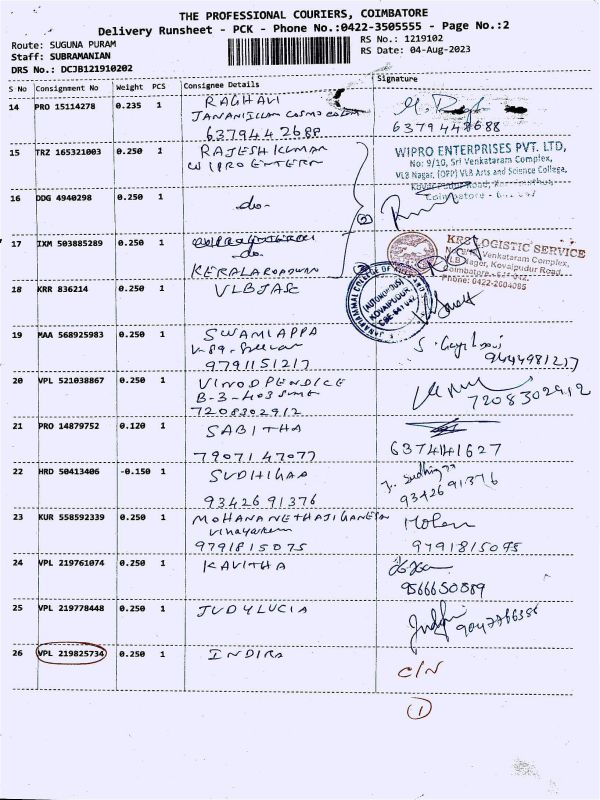 THE PROFESSIONAL COURIERS, COIMBATORE
Delivery Runsheet - PCK - Phone No.:0422-3505555 - Page No.:2
Route: SUGUNA PURAM
RS No.: 1219102
Staff: SUBRAMANIAN
RS Date: 04-Aug-2023
DRS No.: DCJB121910202
S No Consignment No Weight PCS Consignee Details Signature
14 PRO 15114278 0.235 1 RAGHAVI
JANANILLAM COSMO
6379442688
6379442688
15 TRZ 165321003 0.250 1 RAJESH KUMAR
WIPRO ENTERR
WIPRO ENTERPRISES PVT. LTD,
No: 9/10, Sri Venkataram Complex,
VLB Nagar, (OPP) VLB Arts and Science College,
Kovai Pudur Road,
Coimbatore -
16 DDG 4940298 0.250 1 -do-
2
17 IXM 503885289 0.250 1
-do-
KERALA ROADWAY
KRS LOGISTIC SERVICE
Venkataram Complex,
VLB Nagar, Kovaipudur Road,
Coimbatore - 641 042.
Phone: 0422-2604085
18 KRR 836214 0.250 1 VLBJASC
(AUTONOMOUS)
KOVAIPUDUR
CBE-641 042
19 MAA 568925983 0.250 1 SWAMIAPPA
V-89-
9791151217
9444981217
20 VPL 521038867 0.250 1 VINOD PENDICE
B-3-403
7208302912
7208302912
21 PRO 14879752 0.120 1 SABITHA
7907147077
6374141627
22 HRD 50413406 -0.150 1
9342691376
9342691376
23 KUR 558592339 0.250 1 MOHANA NETHAJI GANESAN
Vinayakam
9791815075
Mohan
9791815095
24 VPL 219761074 0.250 1 KAVITHA
9566650889
25 VPL 219778448 0.250 1 JUDY LUCIA
26 VPL 219825734 0.250 1 INDIRA
C/N
1